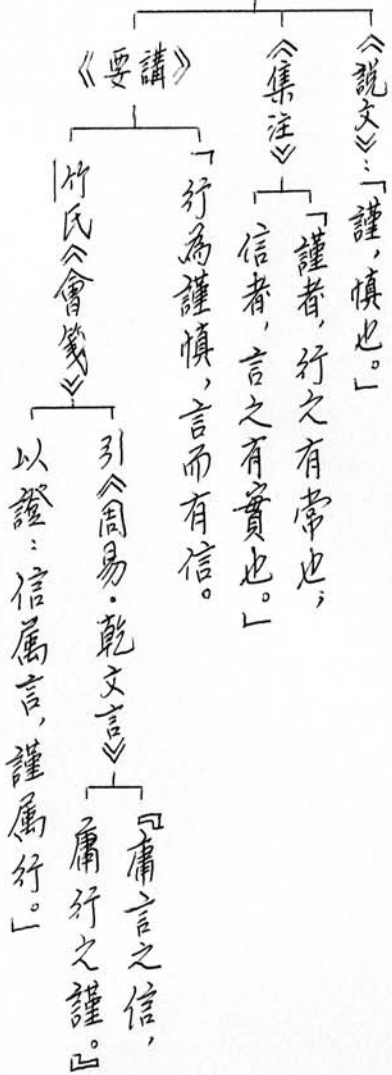 《說文》：「謹，慎也。」
《集注》
「謹者，行之有常也；
信者，言之有實也。」
《要講》
「行為謹慎，言而有信。
竹氏《會箋》
引《周易·乾文言》
『庸言之信，
庸行之謹。』
以證：信屬言，謹屬行。」